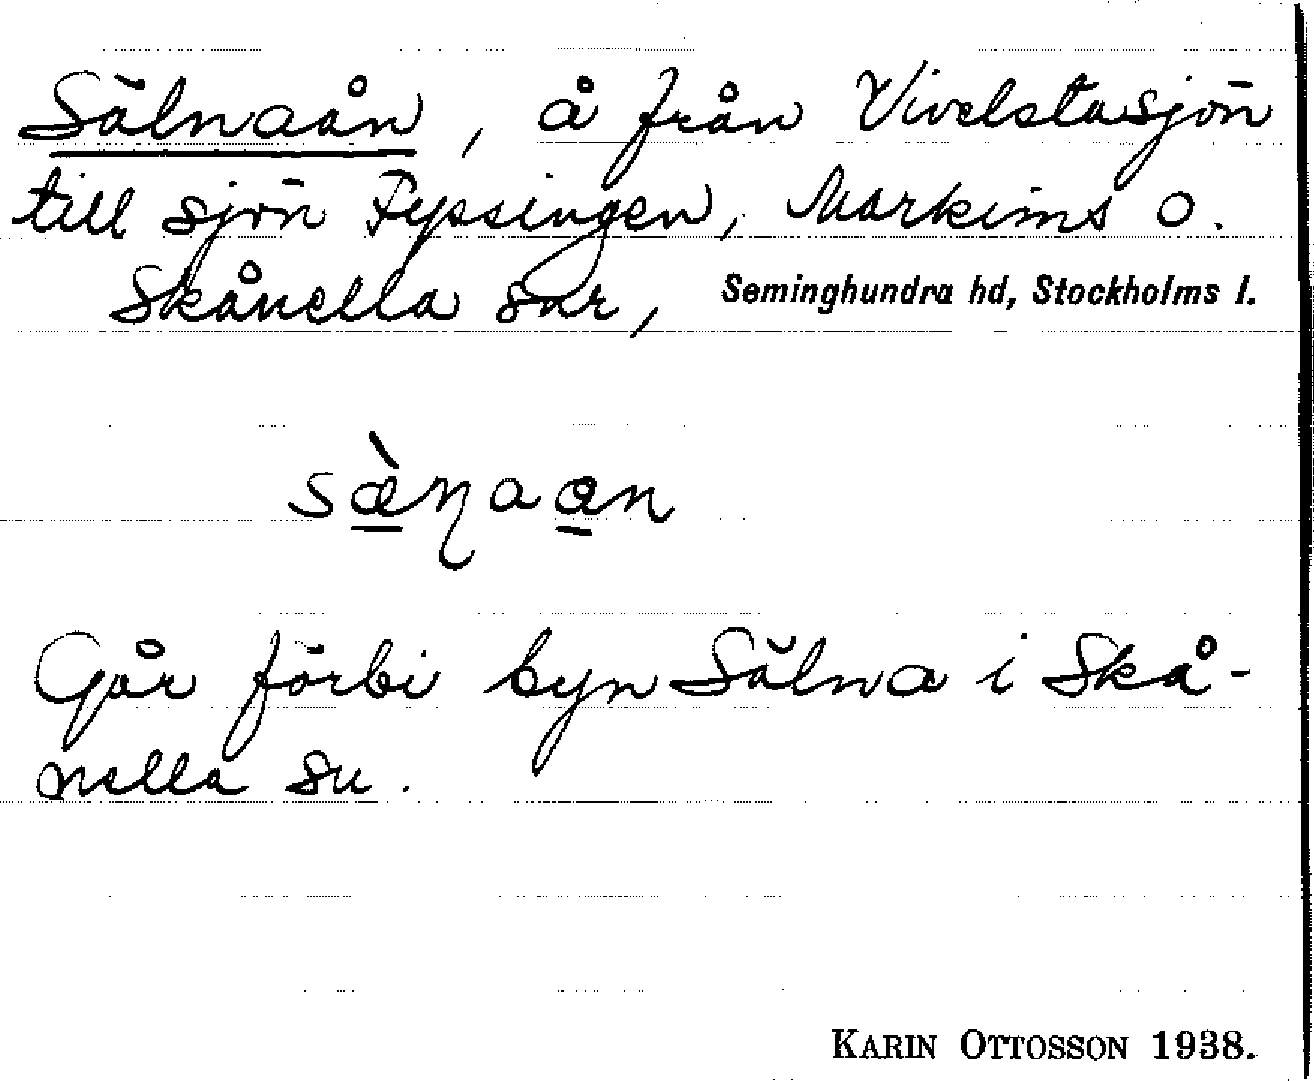 Sälnaån, å från Vivelstasjön
till sjön Fysingen, Markims o.
Skånella snr, Seminghundra hd, Stockholms l.
sæ̀ɳaan
Går förbi byn Sälna i Skå-
nella sn.
KARIN OTTOSSON 1938.